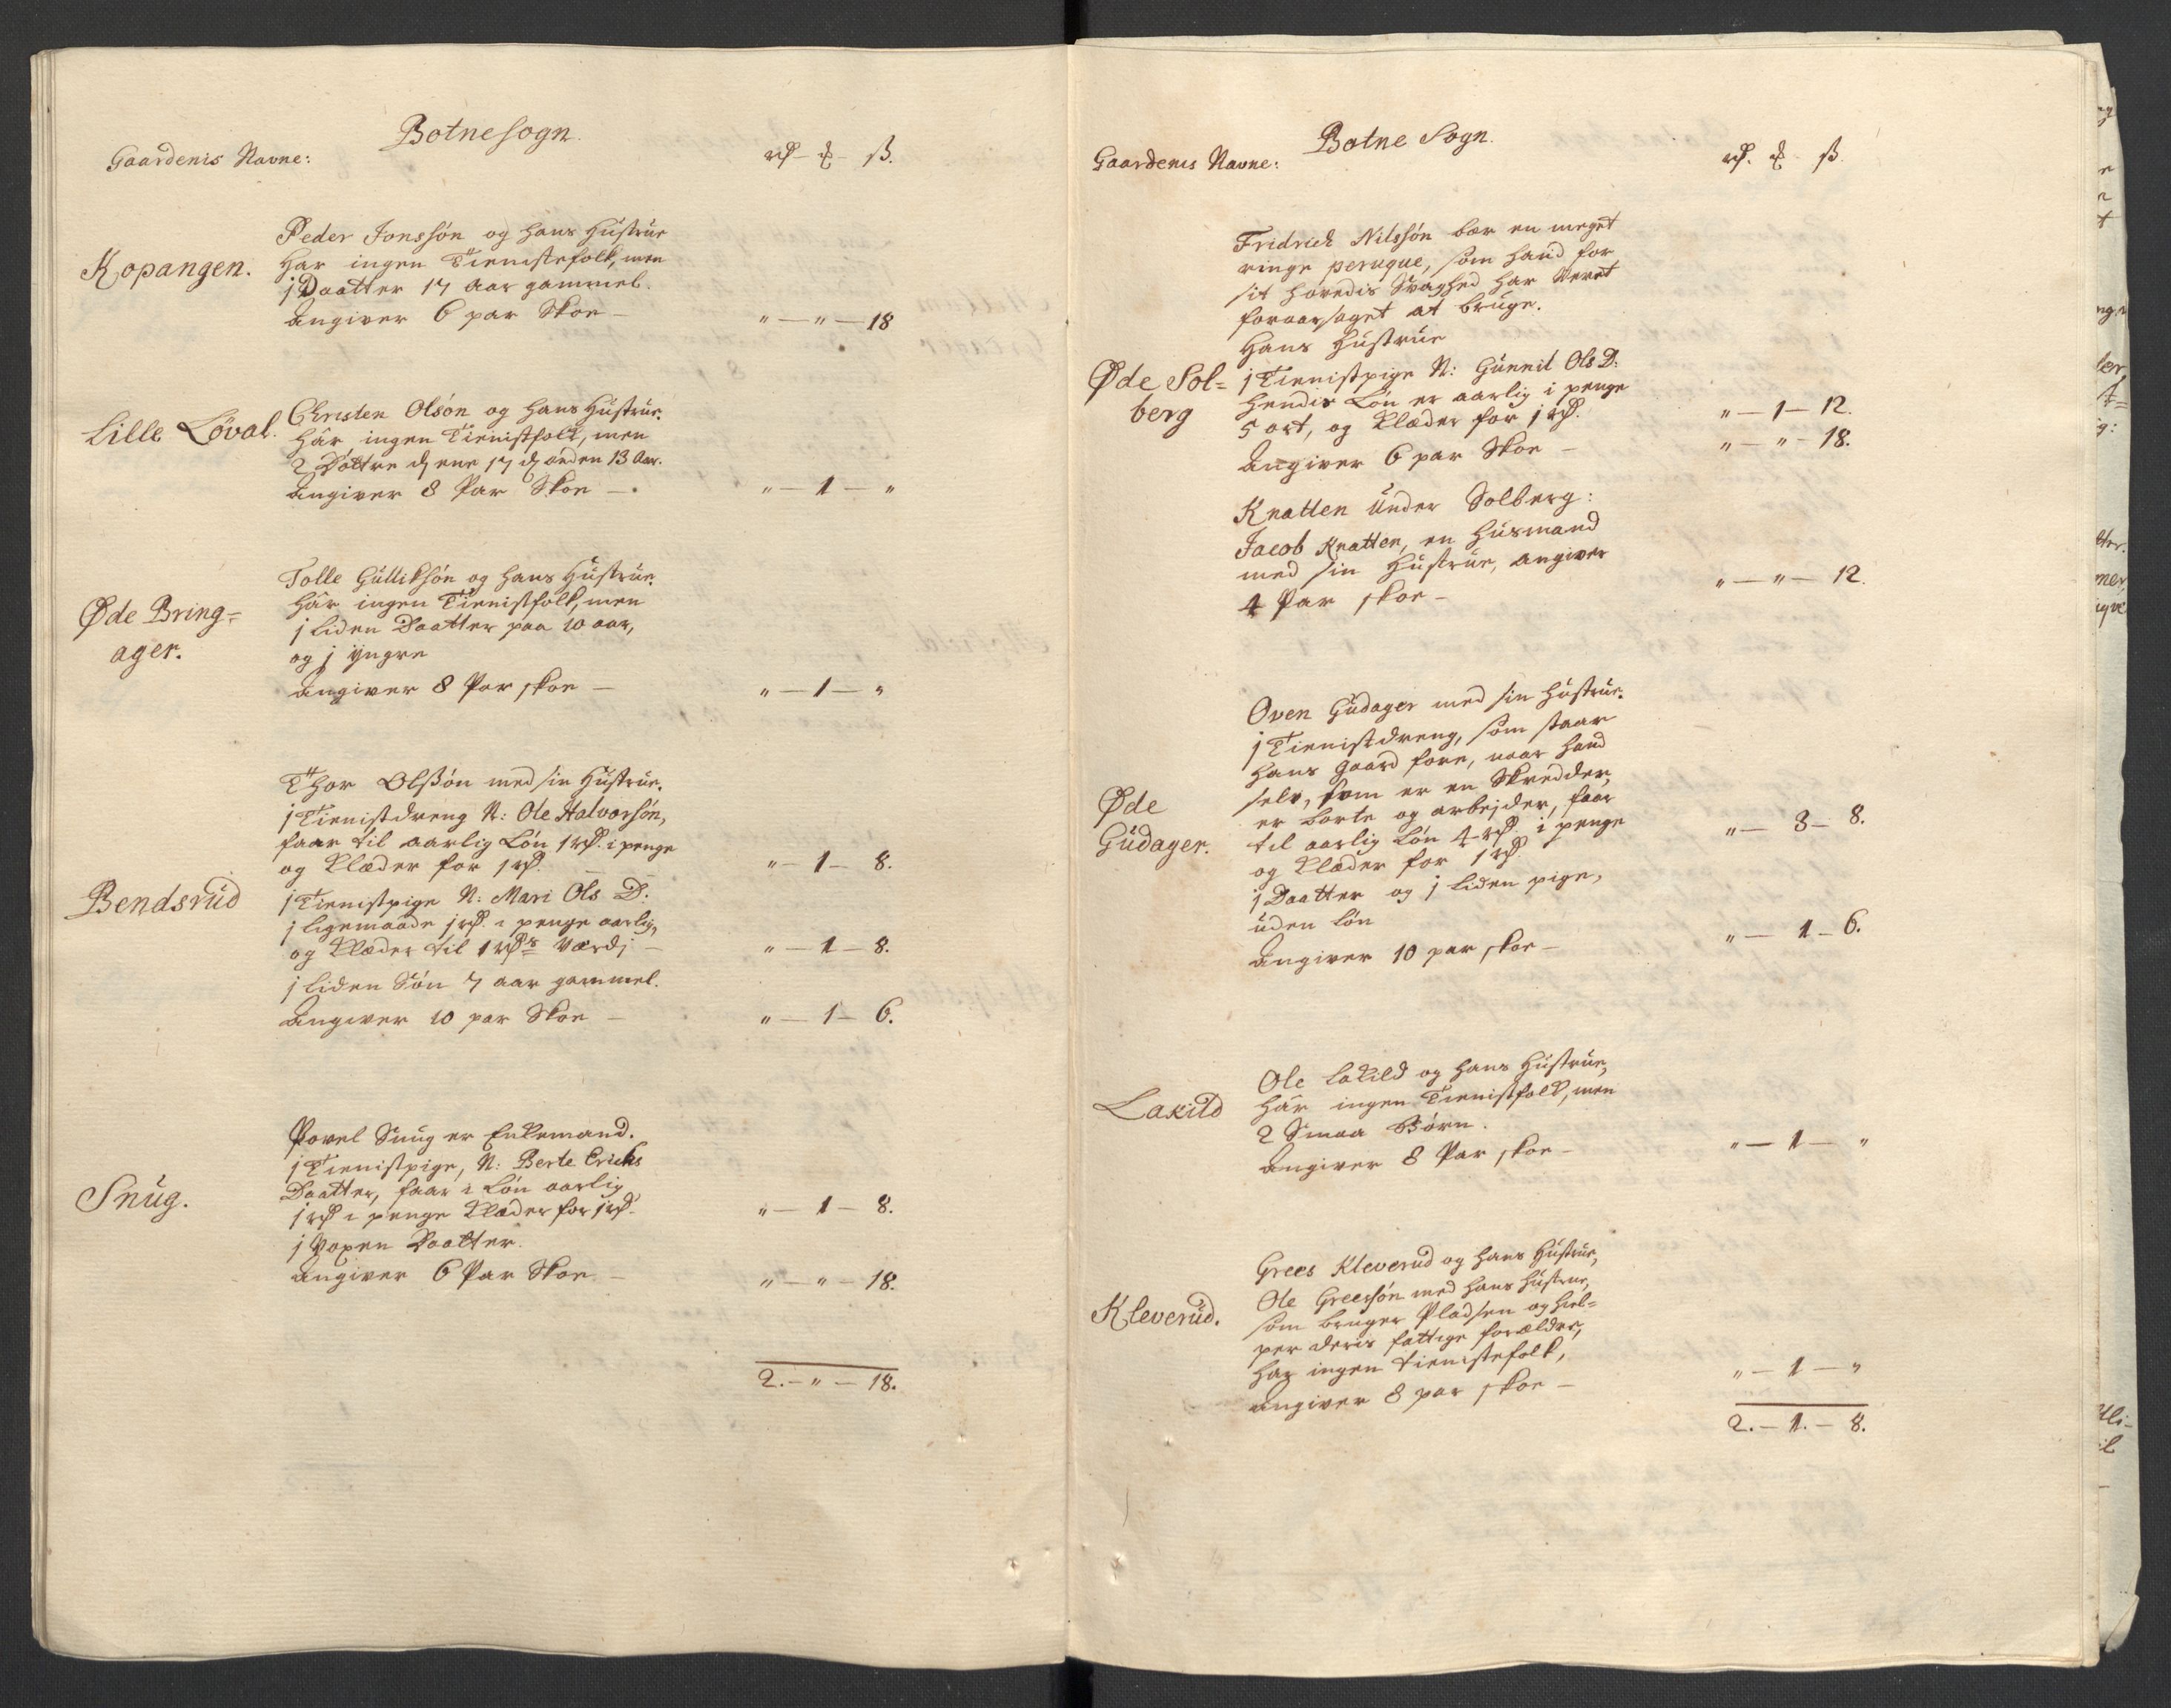 Botne sogn.
Gaardenis Navne:
rd – ort – ß.
Kopangen.
Peder Jonssön og hans Hustrue
har ingen Tienistefolk, men
j Daatter 17 Aar gammel.
Angiver 6 par Skoe —
" — " — 18
Lille Löval.
Christen Olsön og hans Hustrue.
här ingen Tienistfolk, men
2 Döttre den ene 17 den anden 13 Aar.
Angiver 8 Par Skoe —
" — 1 — "
Øde Bring=
ager.
Tolle Gulliksön og hans Hustrue.
här ingen Tienistfolk, men
j liden Daatter paa 10 aar,
og j yngre
Angiver 8 Par skoe —
" — 1 — "
Bendsrüd
Thor Olßön med sin Hustrue.
j Tienistdreng N: Ole Halvorsön,
faar til aarlig Lön 1 rd. i penge
og Klæder for 1 rd.
" — 1 — 8.
j Tienistpige N: Mari Ols D.
j ligemaade j rd. i penge aarlig,
og Klæder til 1 rdrs Værdj —
" — 1 — 8.
j liden Sön 7 aar gammel.
Angiver 10 par Skoe —
" — 1 — 6.
Snüg.
Povel Snug er Enkemand.
j Tienistpige, N: Berte Erichs
Daatter, faar i Lön aarlig
1 rd i penge Klæder for j rd.
" — 1 — 8.
j Voxen Daatter.
Angiver 6 Par Skoe —
" — " — 18.
2. — " — 18.
Botne Sogn.
Gaardenis Navne:
rd. ort ß.
Øde Sol=
berg
Fridrich Nilssön bær en meget
ringe peruque, som hand for
sit hovedis Svaghed har Veret
foraarsaget at bruge.
Hans Hustrue
j Tienistpige N: Gunnil Ols D:
hendis Lön er aarlig i penge
5 ort, og Klæder for j rd.
" — 1 — 12.
Angiver 6 par Skoe —
" — " — 18.
Knatten Under Solberg:
Jacob Knatten, en husmand
med sin Hustrue, angiver
4 Par skoe —
" — " — 12.
Øde
Gudager.
Oven Gudager med sin Hustrue.
j Tienistdreng, som staar
hans gaard fore, naar hand
selv, som er en Skredder,
er borte og arbejder, faar
til aarlig Lön 4 rd. i penge
og Klæder for 1 rd.
" — 3 — 8.
j Daatter og j liden pige,
uden Lön
Angiver 10 par skoe —
" — 1 — 6.
Lakild
Ole Lakild og hans Hustrue,
här ingen Tienistfolk, men
2 Smaa Börn.
Angiver 8 Par skoe —
" — 1 — "
Kleverud.
Grees Kleverud og hans Hustrue,
Ole Greessön med hans Hustrue,
som bruger Pladsen og hiel=
per deris fattige forældre,
har ingen tienistefolk,
Angiver 8 par skoe —
" — 1 — "
2. — 1. — 8.